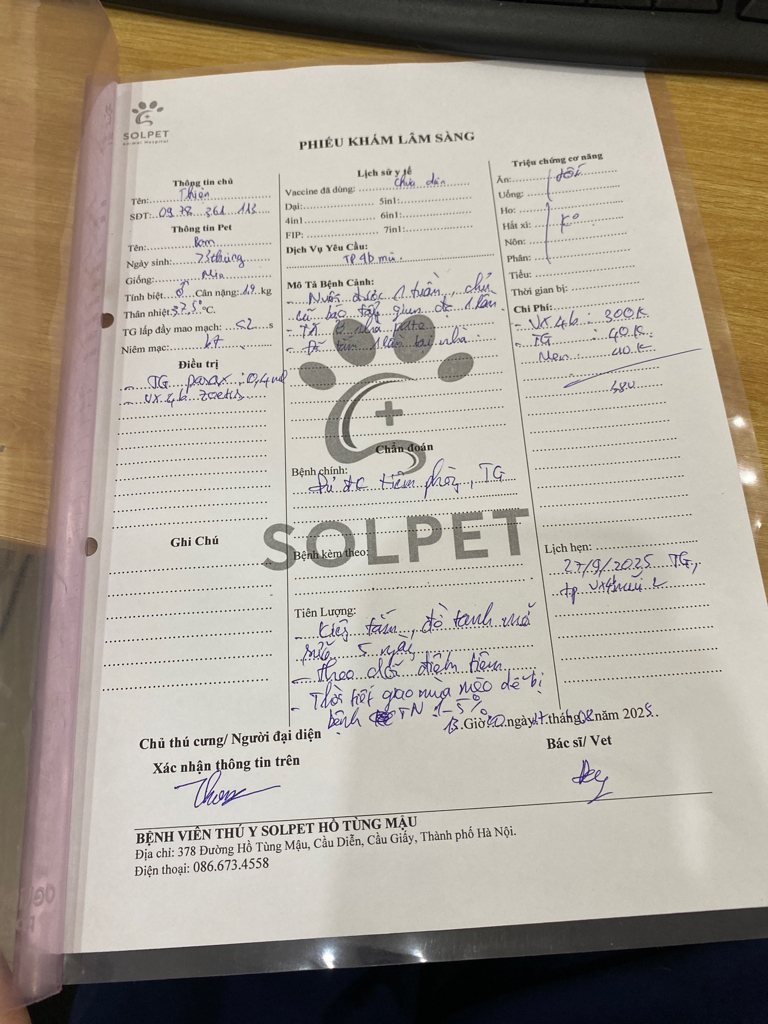 SOLPET
Animal Hospital
PHIẾU KHÁM LÂM SÀNG
Thông tin chủ
Tên: Thiện
SĐT: 09.78.361.113
Thông tin Pet
Tên: Bom
Ngày sinh: 7,5 tháng
Giống:
Tính biệt: ♂ Cân nặng: 1.9 kg
Thân nhiệt: 37.5 °C.
TG lấp đầy mao mạch: <2 s
Niêm mạc: bt
Điều trị
- TG parax : 0,4 ml
- vx 4b zoetis
Ghi Chú
Lịch sử y tế
Vaccine đã dùng: chưa dùng
Dại: 5in1:
4in1 6in1:
FIP: 7in1:
Dịch Vụ Yêu Cầu:
TP 4b mũi
Mô Tả Bệnh Cảnh:
- Nuôi được 1 tuần, chủ
cũ báo tẩy giun đc 1 lần
- TA ở nhà pate
- Đã tắm 1 lần tại nhà
Chẩn đoán
Bệnh chính:
Đủ đc tiêm phòng, TG
SOLPET
Bệnh kèm theo:
Tiên Lượng:
- Kiêng tắm, đồ tanh mỡ
sữa 5 ngày
- theo dõi điểm tiêm
- Thời tiết giao mùa mèo dễ bị
bệnh TN 1-5%
Triệu chứng cơ năng
Ăn: tốt
Uống:
Ho: Ko
Hắt xì:
Nôn:
Phân:
Tiểu:
Thời gian bị:
Chi Phí:
- VX 4b : 300K
- TG : 40K
Nem 40K
380
Lịch hẹn:
27/9/2025 TG,
tp vx mũi 2
Giờ ngày tháng 08 năm 2025.
Chủ thú cưng/ Người đại diện
Xác nhận thông tin trên
Bác sĩ/ Vet
BỆNH VIỆN THÚ Y SOLPET HỒ TÙNG MẬU
Địa chỉ: 378 Đường Hồ Tùng Mậu, Cầu Diễn, Cầu Giấy, Thành phố Hà Nội.
Điện thoại: 086.673.4558